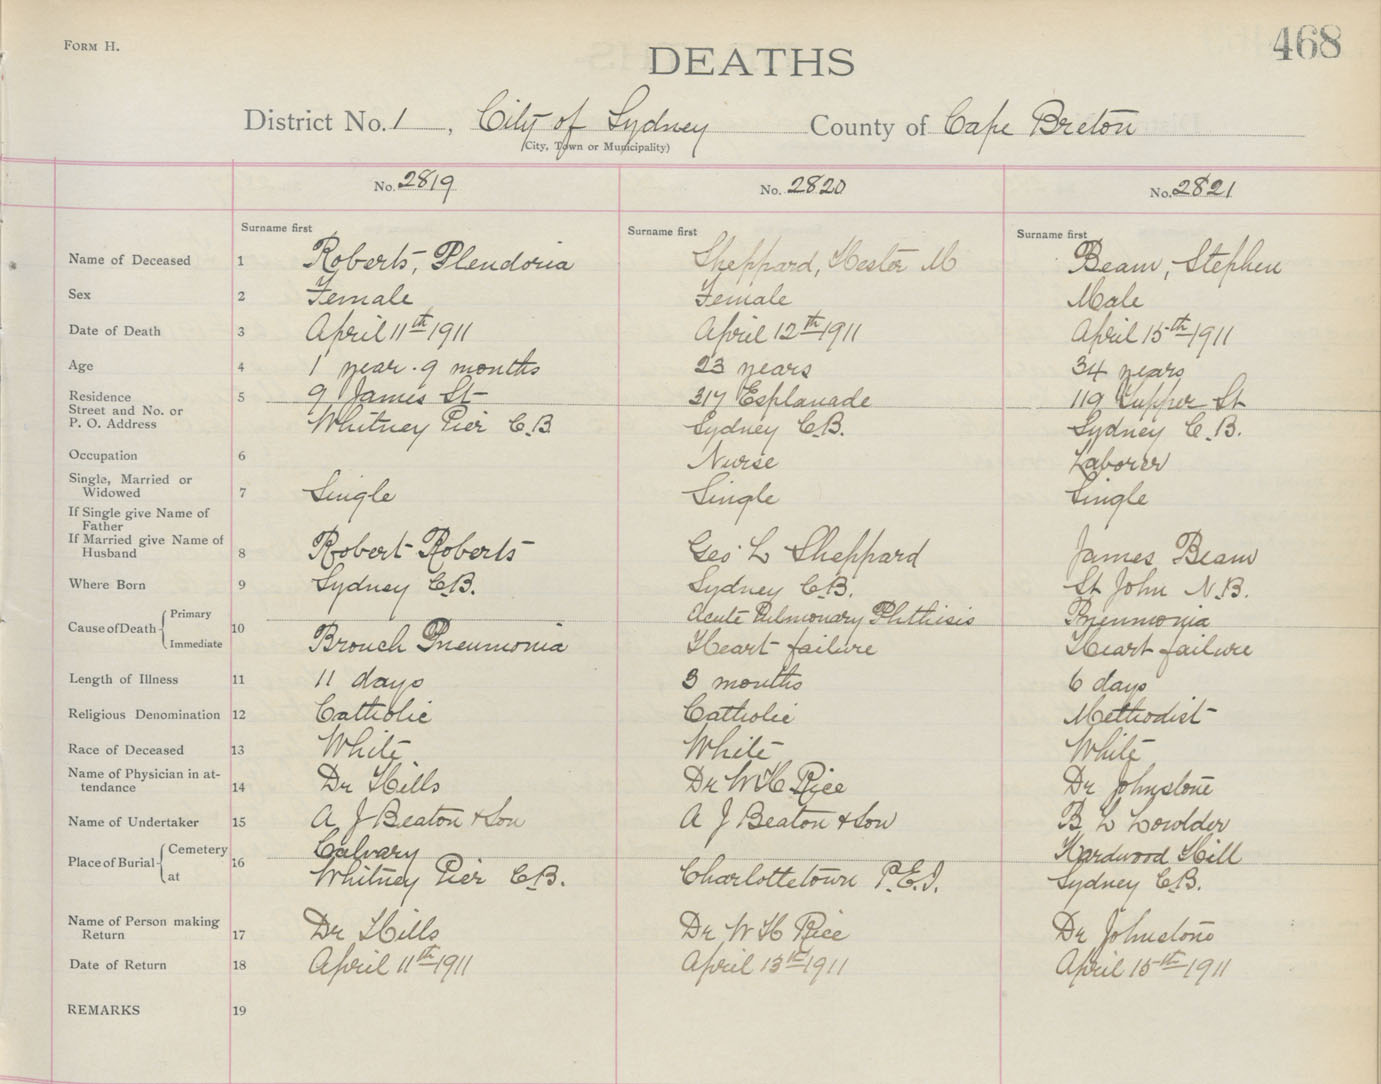 Form H.
468
DEATHS
District No. 1, City of Sydney County of Cape Breton
(City, Town or Municipality)
No. 2819 No. 2820 No. 2821
Surname first Surname first Surname first
Name of Deceased 1 Roberts, Plendoria Sheppard, Hester M Beam, Stephen
Sex 2 Female Female Male
Date of Death 3 April 11th 1911 April 12th 1911 April 15th 1911
Age 4 1 year . 9 months 23 years 34 years
Residence 5 9 James St 317 Esplanade 119 Tupper St
Street and No. or
P. O. Address Whitney Pier C.B Sydney C.B. Sydney C.B.
Occupation 6 Nurse Laborer
Single, Married or
Widowed 7 Single Single Single
If Single give Name of
Father
If Married give Name of
Husband 8 Robert Roberts Geo. L Sheppard James Beam
Where Born 9 Sydney C.B. Sydney C.B. St John N.B.
Cause of Death 10 Primary Acute Pulmonary Phthisis Pneumonia
Immediate Bronch Pneumonia Heart failure Heart failure
Length of Illness 11 11 days 3 months 6 days
Religious Denomination 12 Catholic Catholic Methodist
Race of Deceased 13 White White White
Name of Physician in at-
tendance 14 Dr Hills Dr W H Rice Dr Johnstone
Name of Undertaker 15 A J Beaton & Son A J Beaton & Son B L
Place of Burial 16 Cemetery Calvary Hardwood Hill
at Whitney Pier C.B. Charlottetown P.E.I. Sydney C.B.
Name of Person making
Return 17 Dr Hills Dr W H Rice Dr Johnstone
Date of Return 18 April 11th 1911 April 13th 1911 April 15th 1911
REMARKS 19